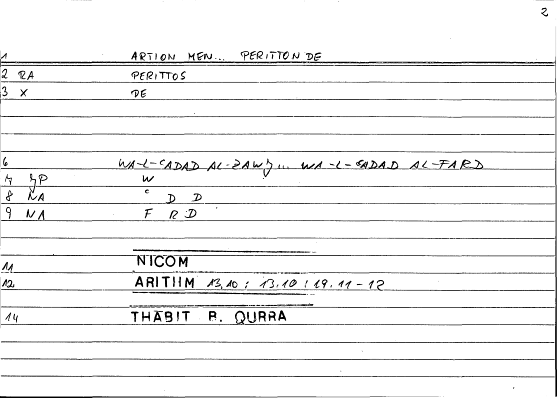 2
1 ARTION MEN... PERITTON DE
2 RA PERITTOS
3 X DE
6 WA-L-ʿADAD AL-ZAWJ... WA-L-ʿADAD AL-FARD
7 JP W
8 NA ʿ D D
9 NA F R D
11 NICOM
12 ARITHM 13,10 : 13.10 : 19.11-12
14 THĀBIT B. QURRA